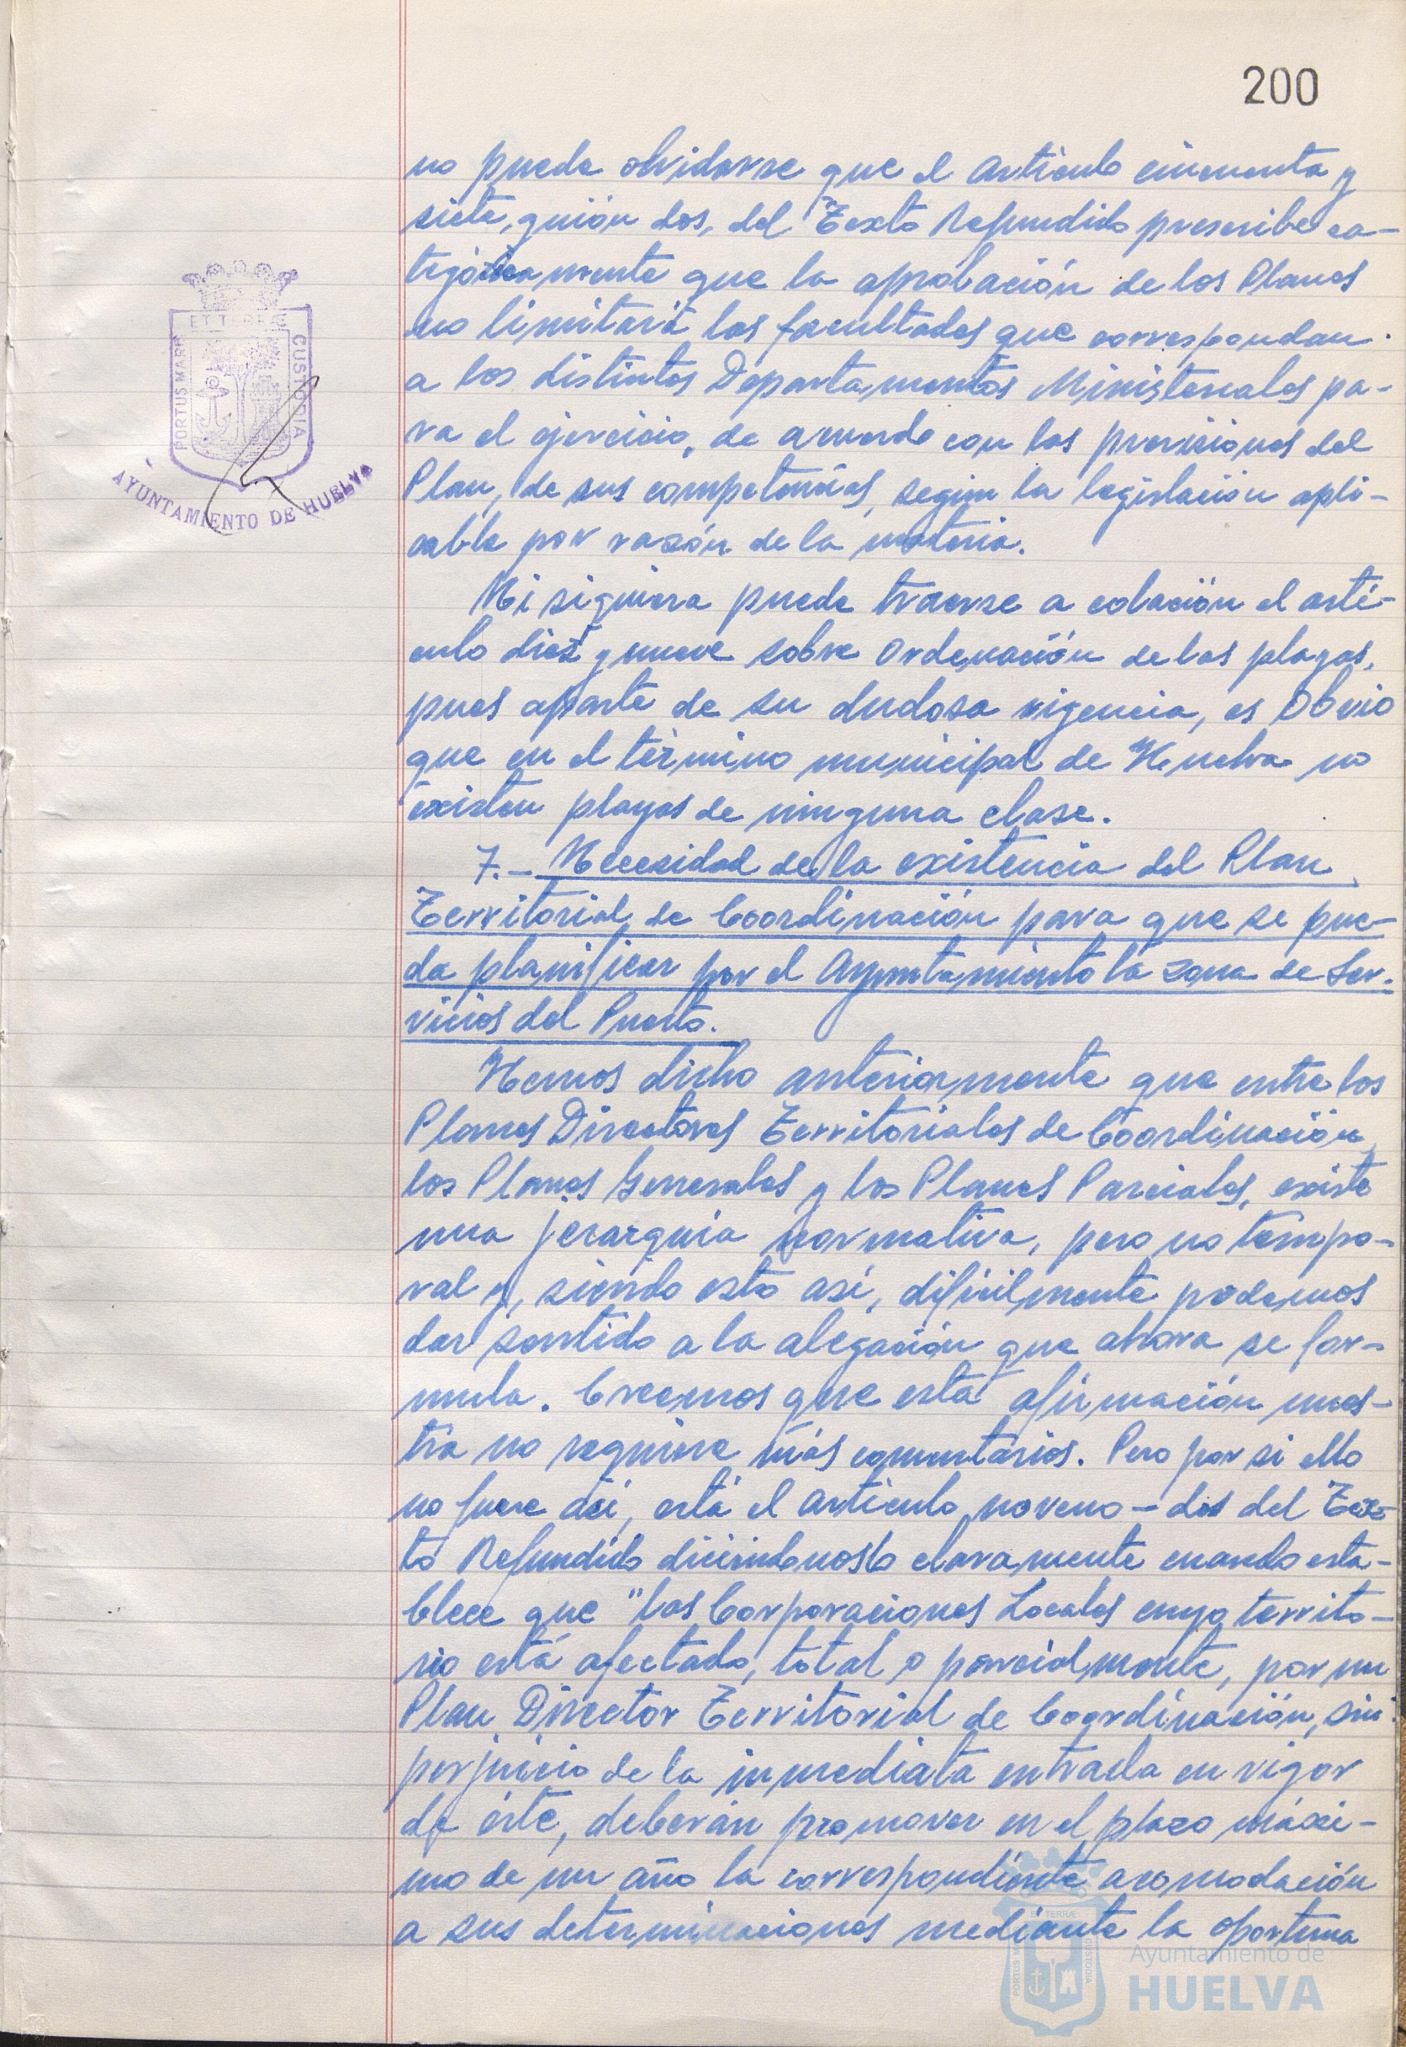 200
no puede olvidarse que el artículo cincuenta y
siete, guión dos, del Texto Refundido prescribe ca-
tegóricamente que la aprobación de los Planes
no limitará las facultades que correspondan
a los distintos Departamentos Ministeriales pa-
ra el ejercicio, de acuerdo con las previsiones del
Plan, de sus competencias, según la legislación apli-
cable por razón de la materia.
Ni siquiera puede traerse a colación el artí-
culo diez y nueve sobre Ordenación de las playas,
pues aparte de su dudosa vigencia, es Obvio
que en el término municipal de Huelva no
existen playas de ninguna clase.
7.- Necesidad de la existencia del Plan
Territorial de Coordinación para que se pue-
da planificar por el Ayuntamiento la zona de Ser-
vicios del Puerto.
Hemos dicho anteriormente que entre los
Planes Directores Territoriales de Coordinación,
los Planes Generales y los Planes Parciales, existe
una jerarquía normativa, pero no tempo-
ral y, siendo esto así, difícilmente podemos
dar sentido a la alegación que ahora se for-
mula. Creemos que esta afirmación nues-
tra no requiere más comentarios. Pero por si ello
no fuere así, está el artículo noveno - dos del Tex-
to Refundido diciéndonoslo claramente cuando esta-
blece que "las Corporaciones Locales cuyo territo-
rio está afectado, total o parcialmente, por un
Plan Director Territorial de Coordinación, sin
perjuicio de la inmediata entrada en vigor
de éste, deberán promover en el plazo máxi-
mo de un año la correspondiente acomodación
a sus determinaciones mediante la oportuna
PORTUS MARIS
ET TERRAE
CUSTODIA
AYUNTAMIENTO DE HUELVA
Ayuntamiento de
HUELVA